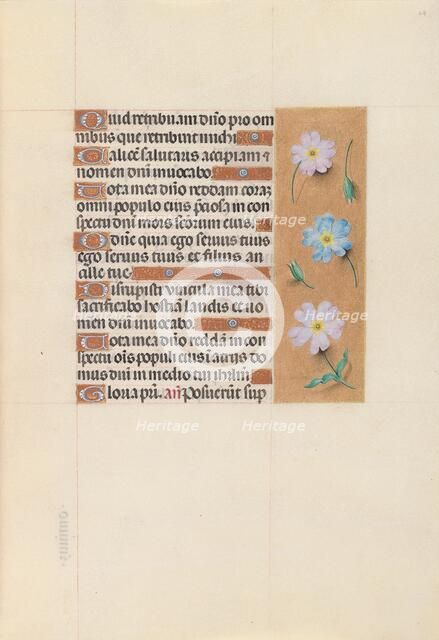 Quid retribuam dño pro om
nibus que retribuit michi
Calicẽ salutaris accipiam ⁊
nomen dñi inuocabo.
Uota mea dño reddam coraz
omni populo eius p̃ciosa in con
spectu dñi mors scorum eius.
O dñe quia ego seruus tuus
ego seruus tuus et filius an
cille tue.
Disrupisti vincula mea tibi
sacrificabo hostiã laudis et no
men dñi inuocabo.
Uota mea dño reddã in con
spectu ois populi eius ĩ atriis do
mus dñi in medio tui ihrlm
Gloria pr̃i. añ Posuerunt sup
heritage
Heritage
Heritage
Heritage
Heritage
Heritage
Heritage